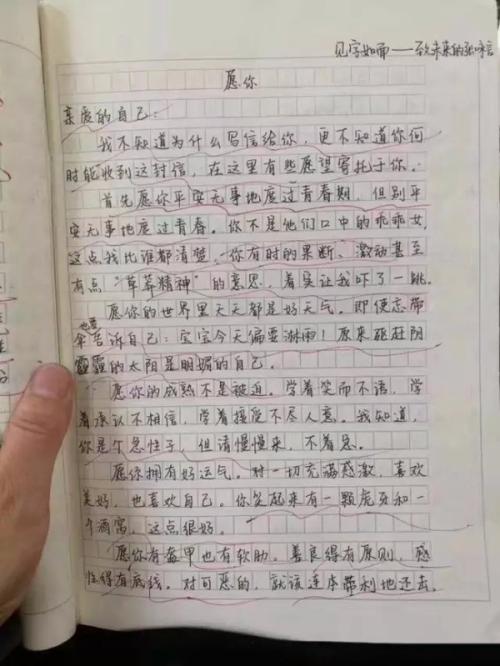 见字如面——致未来的张
愿你
亲爱的自己：
我不知道为什么写信给你，更不知道你何
时能收到这封信，在这里有些愿望寄托于你。
首先愿你平安无事地度过青春期，但别平
安无事地度过青春。你不是他们口中的乖乖女，
这点我比谁都清楚，你有时的果断、激动甚至
有点“草莽精神”的意思，着实让我吓了一跳。
愿你的世界里天天都是好天气。即使忘带
伞也要告诉自己：宝宝今天偏要淋雨！原来驱赶阴
霾的太阳是明媚的自己。
愿你的成熟不是被迫。学着笑而不语，学
着承认不相信，学着接受不尽人意。我知道，
你是个急性子，但请慢慢来，不着急。
愿你拥有好运气。对一切充满感激，喜欢
美好，也喜欢自己。你笑起来有一颗虎牙和一
个酒窝，这点很好。
愿你有盔甲也有软肋。善良得有原则，感
性得有底线。对可恶的，就该连本带利地还击。